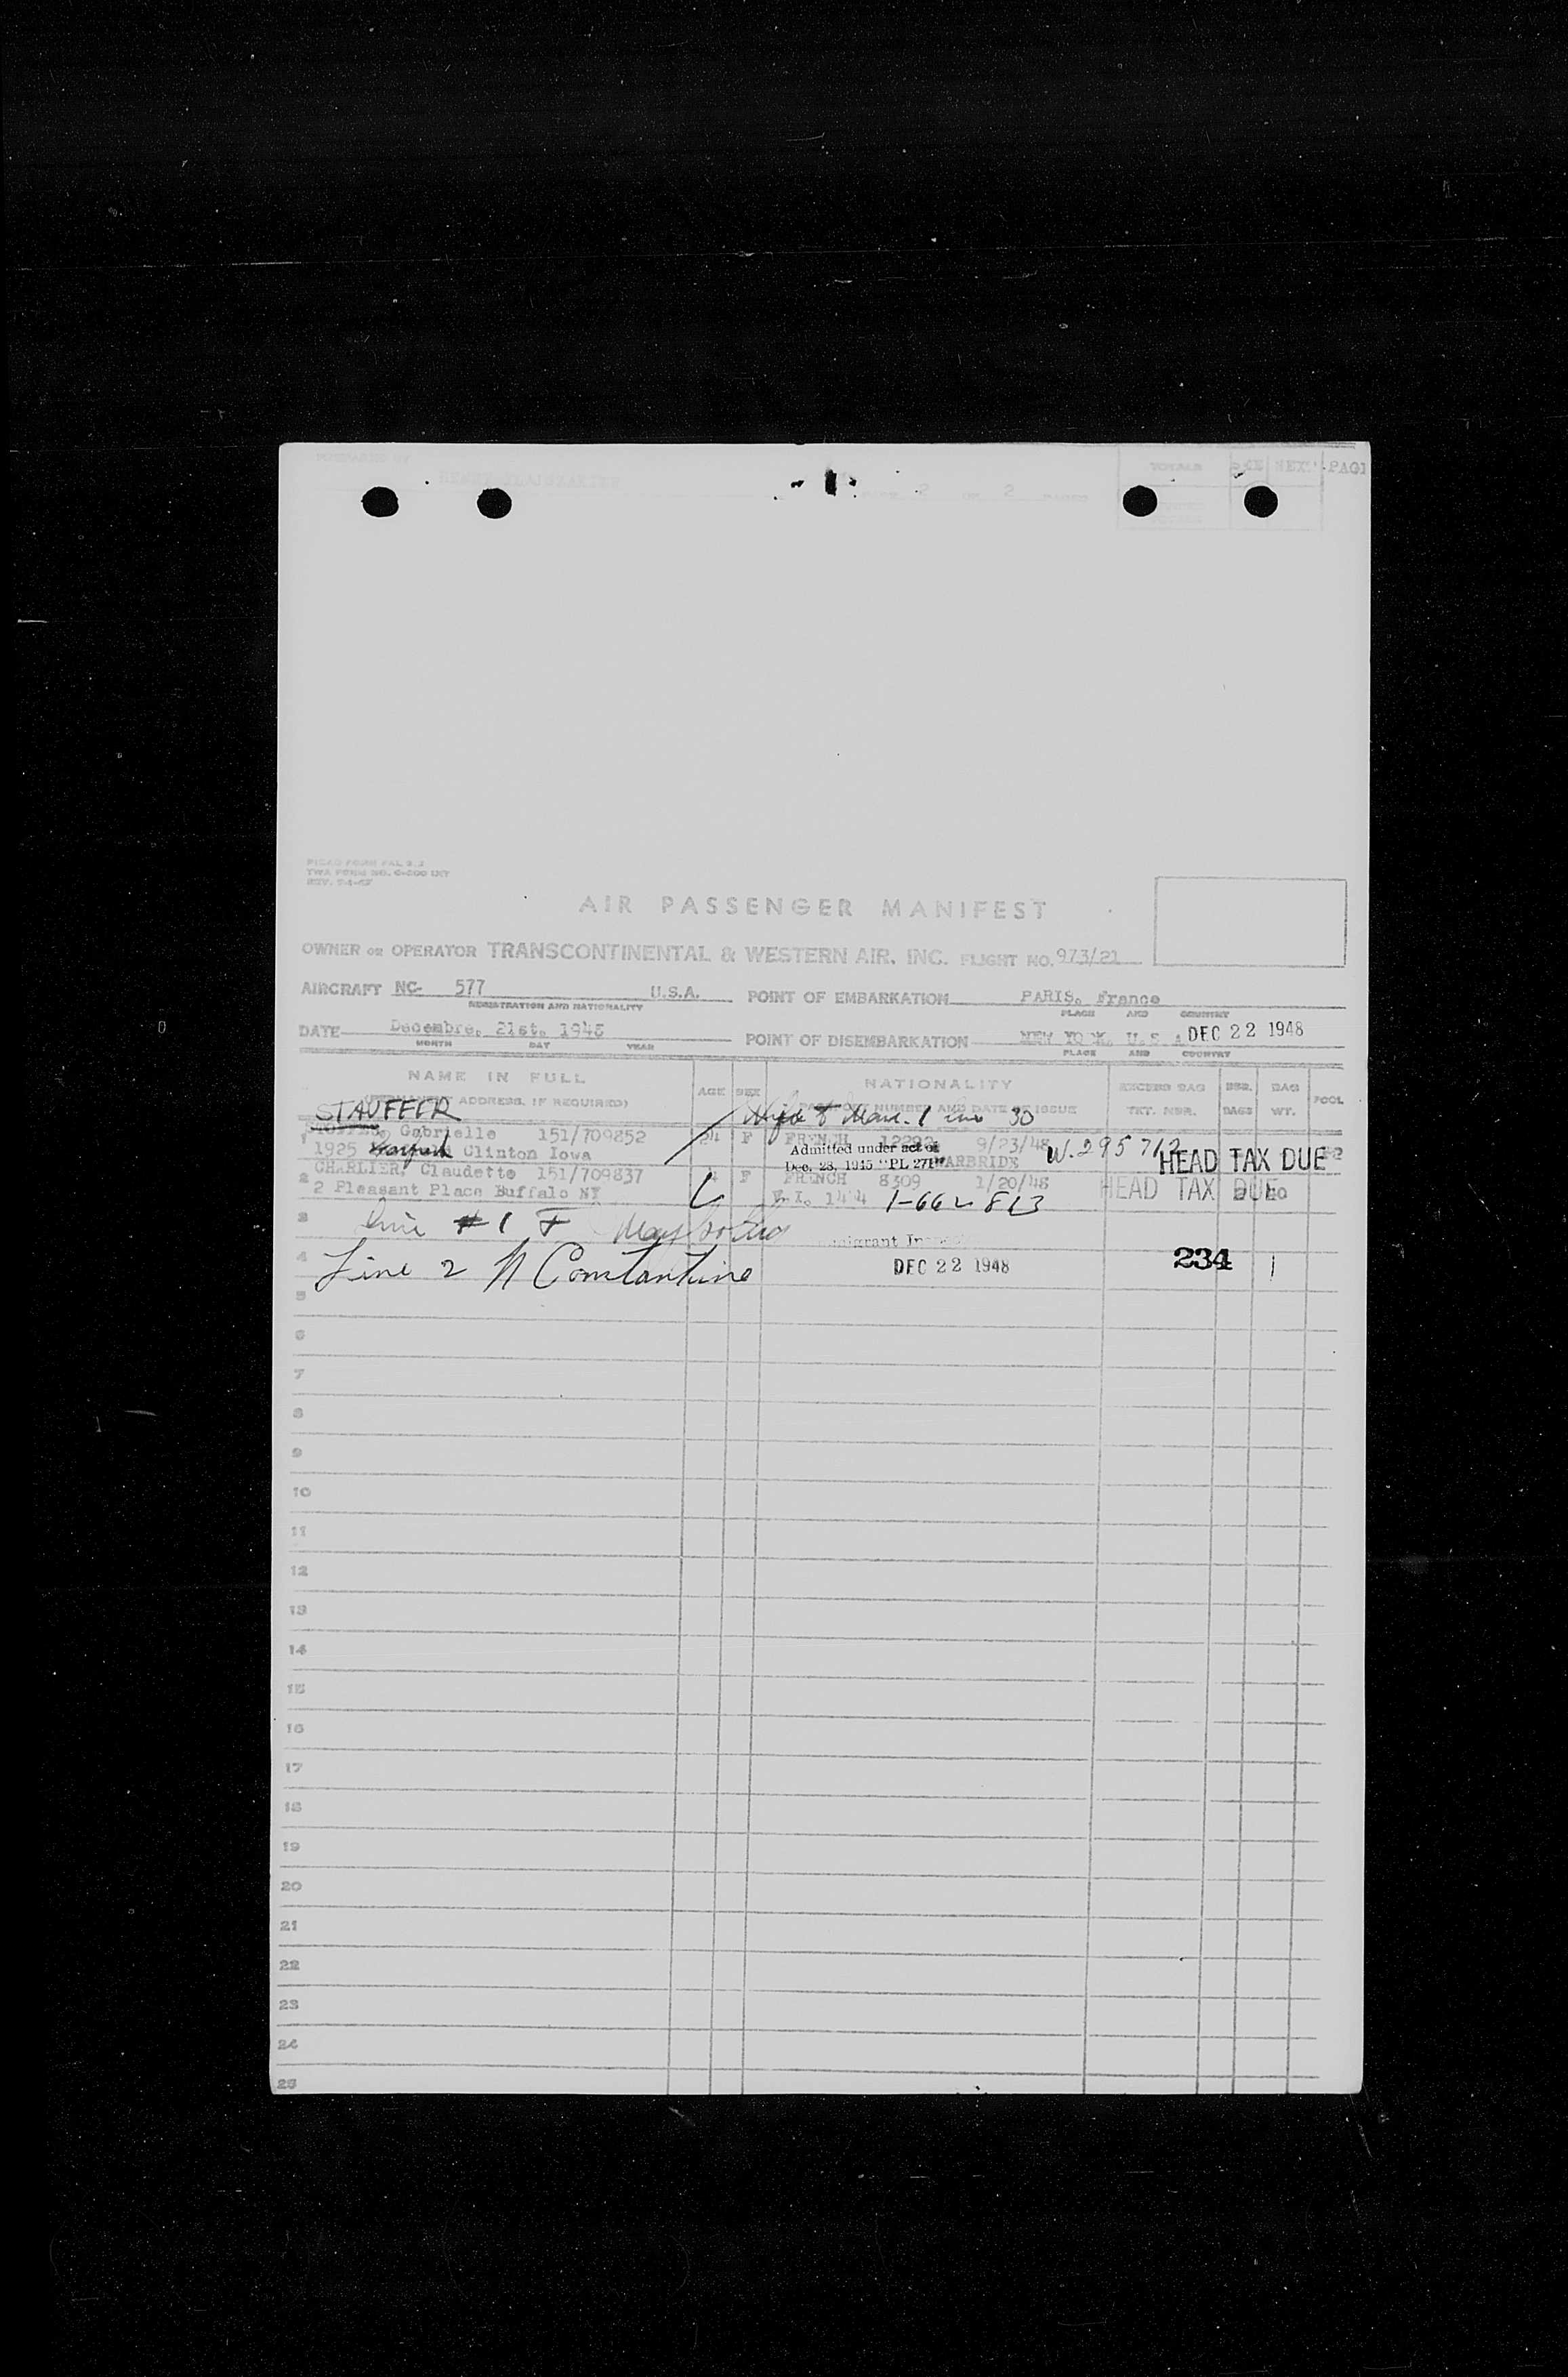 PREPARED BY
TOTALS SEE NEXT PAGE
2 OF 2 PAGES
PICAO FORM FAL 2.2
TWA FORM NO. C-200 INT
REV. 7-1-47
AIR PASSENGER MANIFEST
OWNER OR OPERATOR TRANSCONTINENTAL & WESTERN AIR, INC. FLIGHT NO. 973/21
AIRCRAFT NC- 577 U.S.A. POINT OF EMBARKATION PARIS. France
REGISTRATION AND NATIONALITY PLACE AND COUNTRY
DATE Decembre. 21st. 1948 POINT OF DISEMBARKATION NEW YORK. U.S.A DEC 22 1948
MONTH DAY YEAR PLACE AND COUNTRY
NAME IN FULL AGE SEX NATIONALITY EXCESS BAG NBR. BAG POOL
(PERMANENT ADDRESS, IF REQUIRED) PASSPORT NUMBER AND DATE OF ISSUE TKT. NBR. BAGS WT.
STAUFFER 1 line 30
1 Gabrielle 151/709852 24 F FRENCH 12292 9/23/48 W.295712
1925 Clinton Iowa Admitted under act of Dec. 28, 1945 "PL 271" WARBRIDE HEAD TAX DUE
2 CHARLIER, Claudette 151/709837 4 F FRENCH 8309 1/20/48 HEAD TAX DUE
2 Pleasant Place Buffalo NY 1-662813
3 Line #1 F Immigrant
4 Line 2 N Constantine DEC 22 1948 234 1
5
6
7
8
9
10
11
12
13
14
15
16
17
18
19
20
21
22
23
24
25